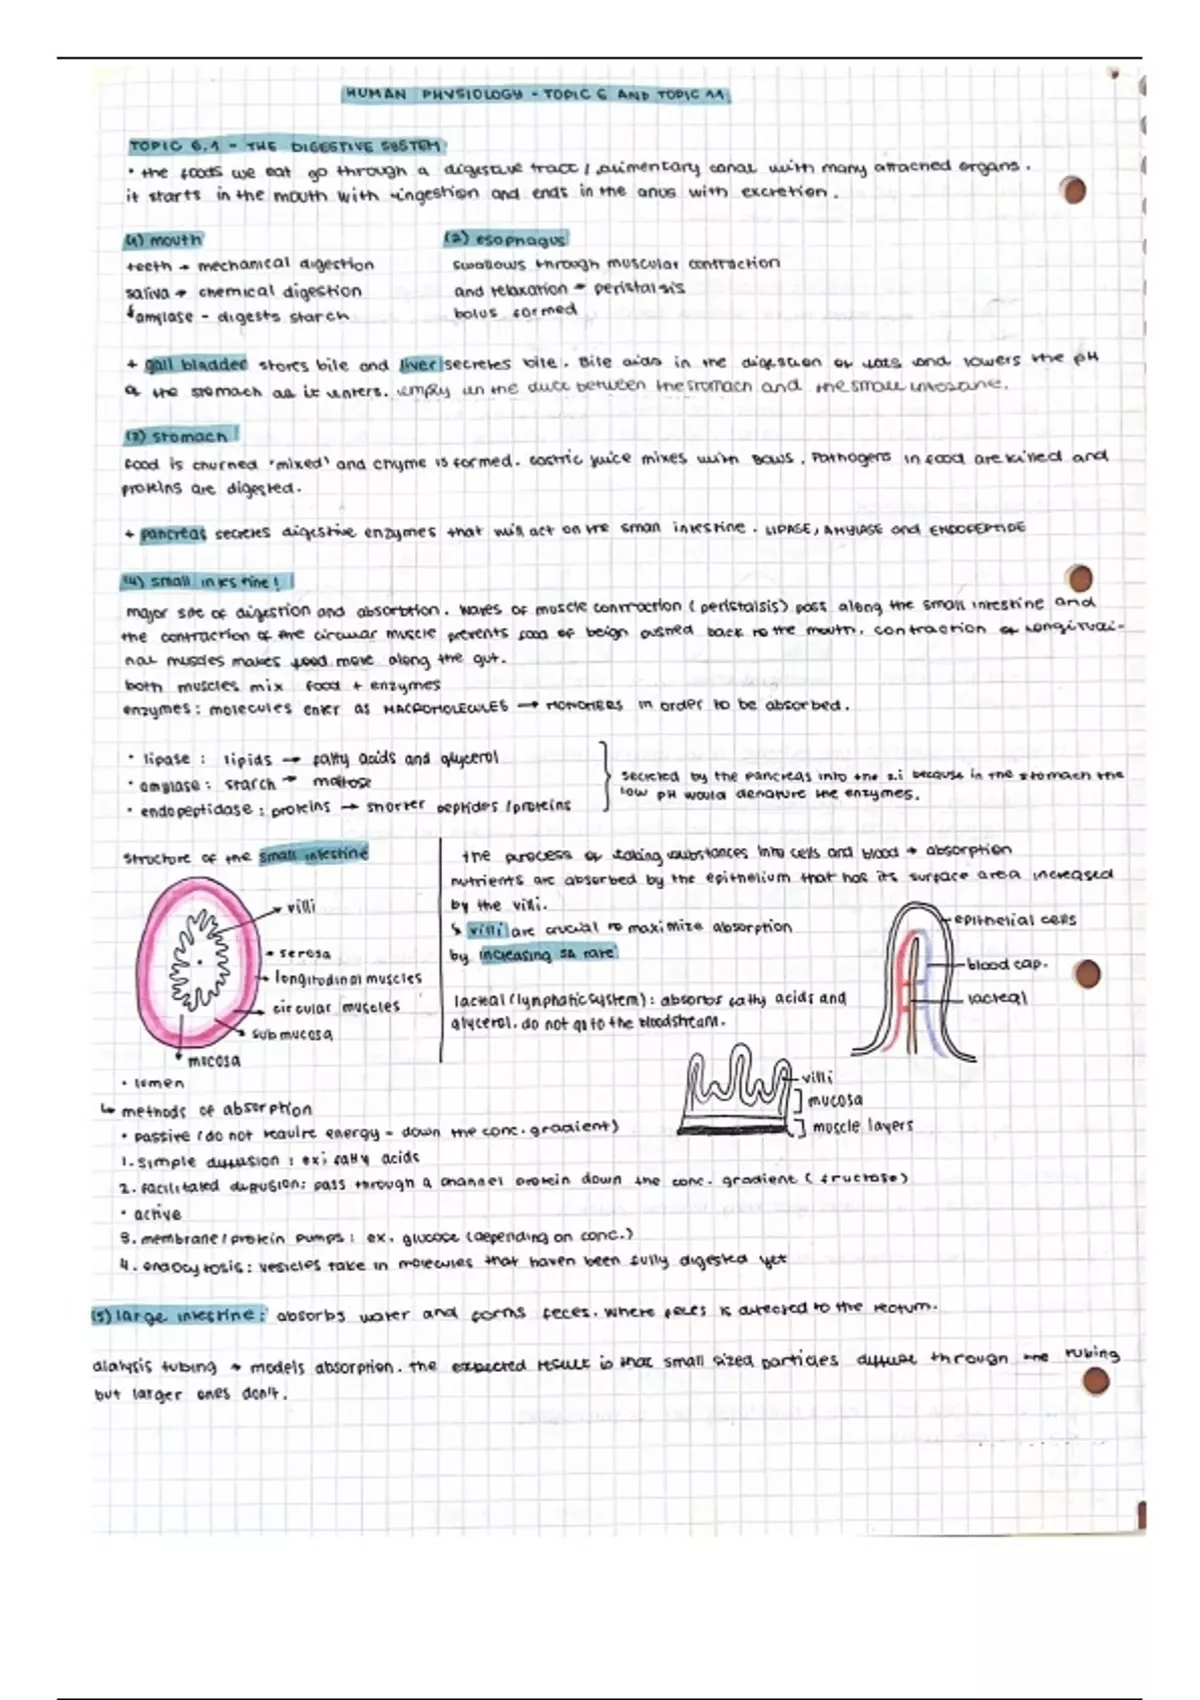 HUMAN PHYSIOLOGY - TOPIC 6 AND TOPIC 11
TOPIC 6.1 - THE DIGESTIVE SYSTEM
• the foods we eat go through a digestive tract / alimentary canal with many attached organs.
it starts in the mouth with ingestion and ends in the anus with excretion.
(1) mouth
teeth → mechanical digestion
saliva → chemical digestion
↳amylase - digests starch
(2) esophagus
swallows through muscular contraction
and relaxation → peristalsis
bolus formed
+ gall bladder stores bile and liver secretes bile. Bile aids in the digestion of fats and lowers the pH
of the stomach as it enters. empty in the duct between the stomach and the small intestine.
(3) stomach
food is churned 'mixed' and chyme is formed. Gastric juice mixes with bolus. Pathogens in food are killed and
proteins are digested.
+ pancreas secretes digestive enzymes that will act on the small intestine. LIPASE, AMYLASE and ENDOPEPTIDE
(4) small intestine!
major site of digestion and absorbtion. waves of muscle contraction (peristalsis) pass along the small intestine and
the contraction of the circular muscle prevents food of beign pushed back to the mouth. contraction of longitudi-
nal muscles makes food move along the gut.
both muscles mix food + enzymes
enzymes: molecules enter as MACROMOLECULES → MONOMERS in order to be absorbed.
• lipase: lipids → fatty acids and glycerol
• amylase: starch → maltose
• endopeptidase: proteins → shorter peptides / proteins
secreted by the pancreas into the s.i because in the stomach the
low pH would denature the enzymes.
structure of the small intestine
villi
serosa
longitudinal muscles
circular muscles
submucosa
mucosa
• lumen
the process of taking substances into cells and blood → absorption
nutrients are absorbed by the epithelium that has its surface area increased
by the villi.
↳ villi are crucial to maximize absorption
by increasing SA rate
lacteal (lymphatic system): absorbs fatty acids and
glycerol. do not go to the bloodstream.
epithelial cells
blood cap.
lacteal
villi
mucosa
muscle layers
↳ methods of absorption
• passive (do not require energy - down the conc. gradient)
1. simple diffusion: ex; fatty acids
2. facilitated diffusion: pass through a channel protein down the conc. gradient (fructose)
• active
3. membrane / protein pumps: ex. glucose (depending on conc.)
4. endocytosis: vesicles take in molecules that haven been fully digested yet
(5) large intestine: absorbs water and forms feces. where feces is directed to the rectum.
dialysis tubing → models absorption. the expected result is that small sized particles diffuse through the tubing
but larger ones don't.